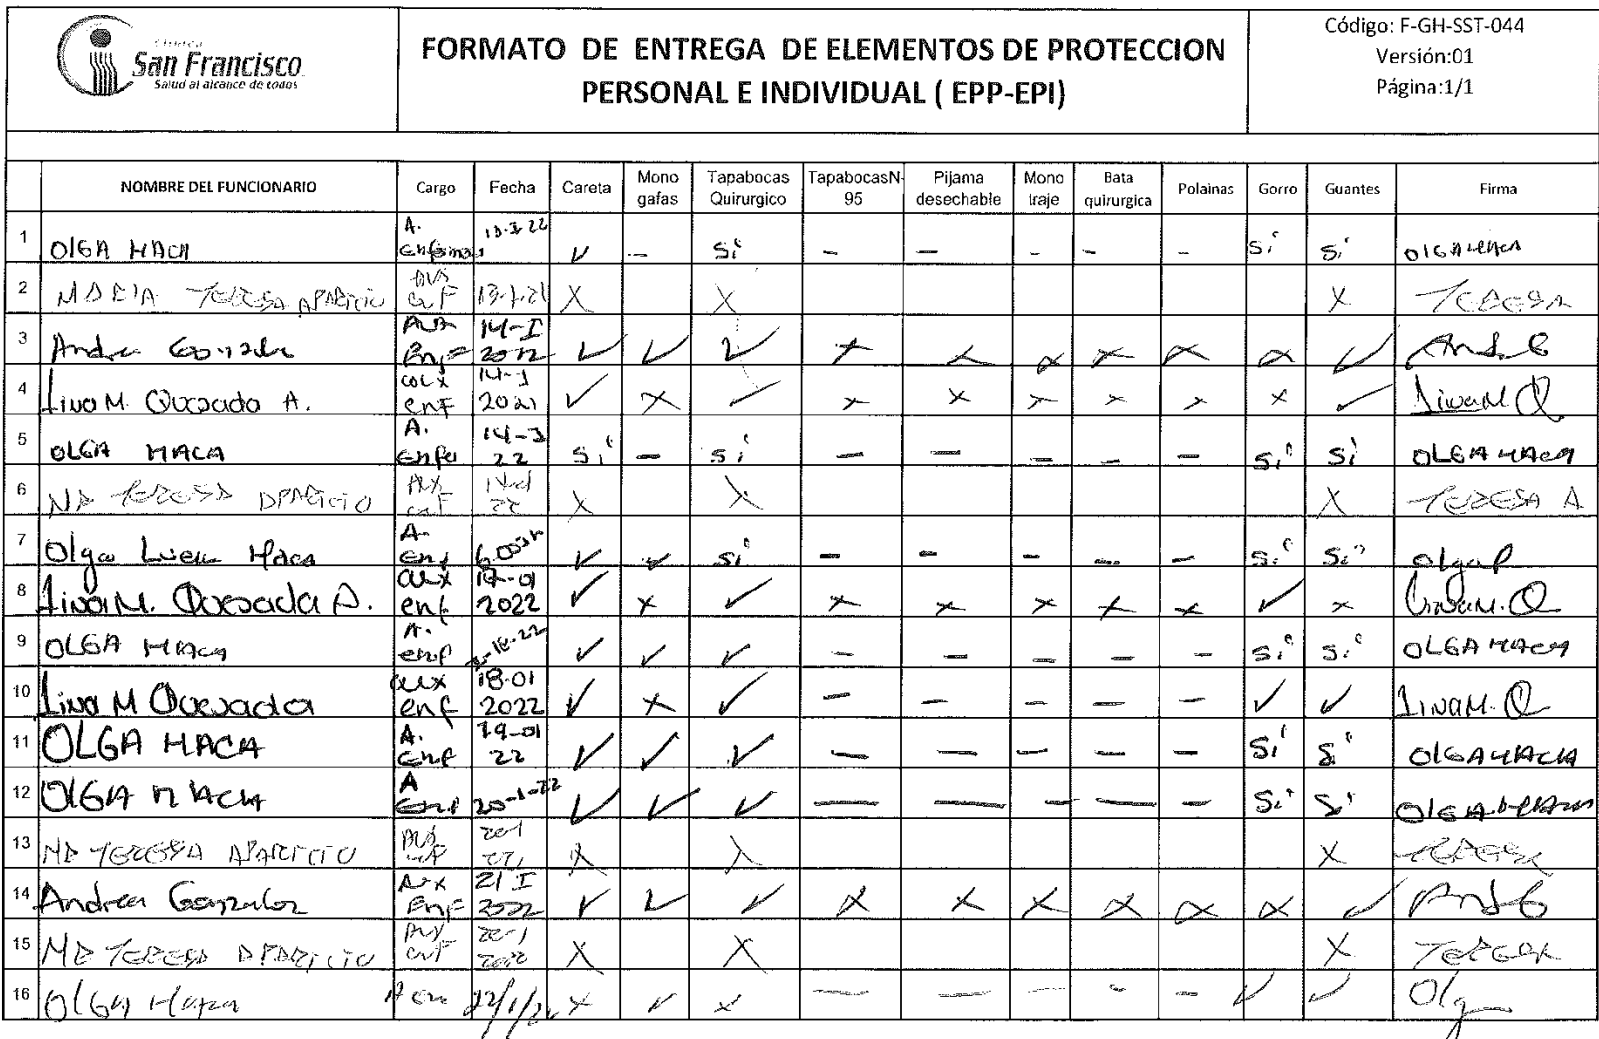 Clínica
San Francisco
Salud al alcance de todos
FORMATO DE ENTREGA DE ELEMENTOS DE PROTECCION
PERSONAL E INDIVIDUAL ( EPP-EPI)
Código: F-GH-SST-044
Versión:01
Página:1/1
NOMBRE DEL FUNCIONARIO Cargo Fecha Careta Mono gafas Tapabocas Quirurgico TapabocasN-95 Pijama desechable Mono traje Bata quirurgica Polainas Gorro Guantes Firma
1 OlGA MACA A. 13-I-22 ✓ - Si - - - - - Si Si OlGA MACA
2 MARIA TERESA APARICIO enF 13-1-21 X X X TERESA
3 Andrea Gonzalez Enf 14-I ✓ ✓ ✓ x x x x x x ✓ And. G
4 Lina M. Quesada A. aux enf 14-1 2021 ✓ x ✓ x x x x x x ✓ Lina M. Q
5 OLGA MACA A. enfe 14-1 22 Si - Si - - - - - Si Si OLGA MACA
6 Ma TERESA APARICIO Aux enf 22 X X X TERESA A
7 Olga Maca A. enf ✓ ✓ Si - - - - - Si Si Olga
8 Lina M. Quesada A. aux enf 17-01 2022 ✓ x ✓ x x x x x ✓ x Lina M. Q
9 OLGA MACA A. enf ✓ ✓ ✓ - - - - - Si Si OLGA MACA
10 Lina M Quesada aux enf 18-01 2022 ✓ x ✓ - - - - - ✓ ✓ Lina M. Q
11 OLGA MACA A. Enf 19-01 22 ✓ ✓ ✓ - - - - - Si Si OlGA MACA
12 OlGA MACA A Enf 20-1-22 ✓ ✓ ✓ - - - - - Si Si OlGA MACA
13 Ma TERESA APARICIO Aux enf 20-1 X X X TERESA
14 Andrea Gonzalez Aux Enf 21 I 2022 ✓ ✓ ✓ x x x x x x ✓ And G
15 Ma TERESA APARICIO Aux enf X X X TERESA
16 OlGA Maca A en 22/1/22 x ✓ x - - - - - ✓ ✓ Olg